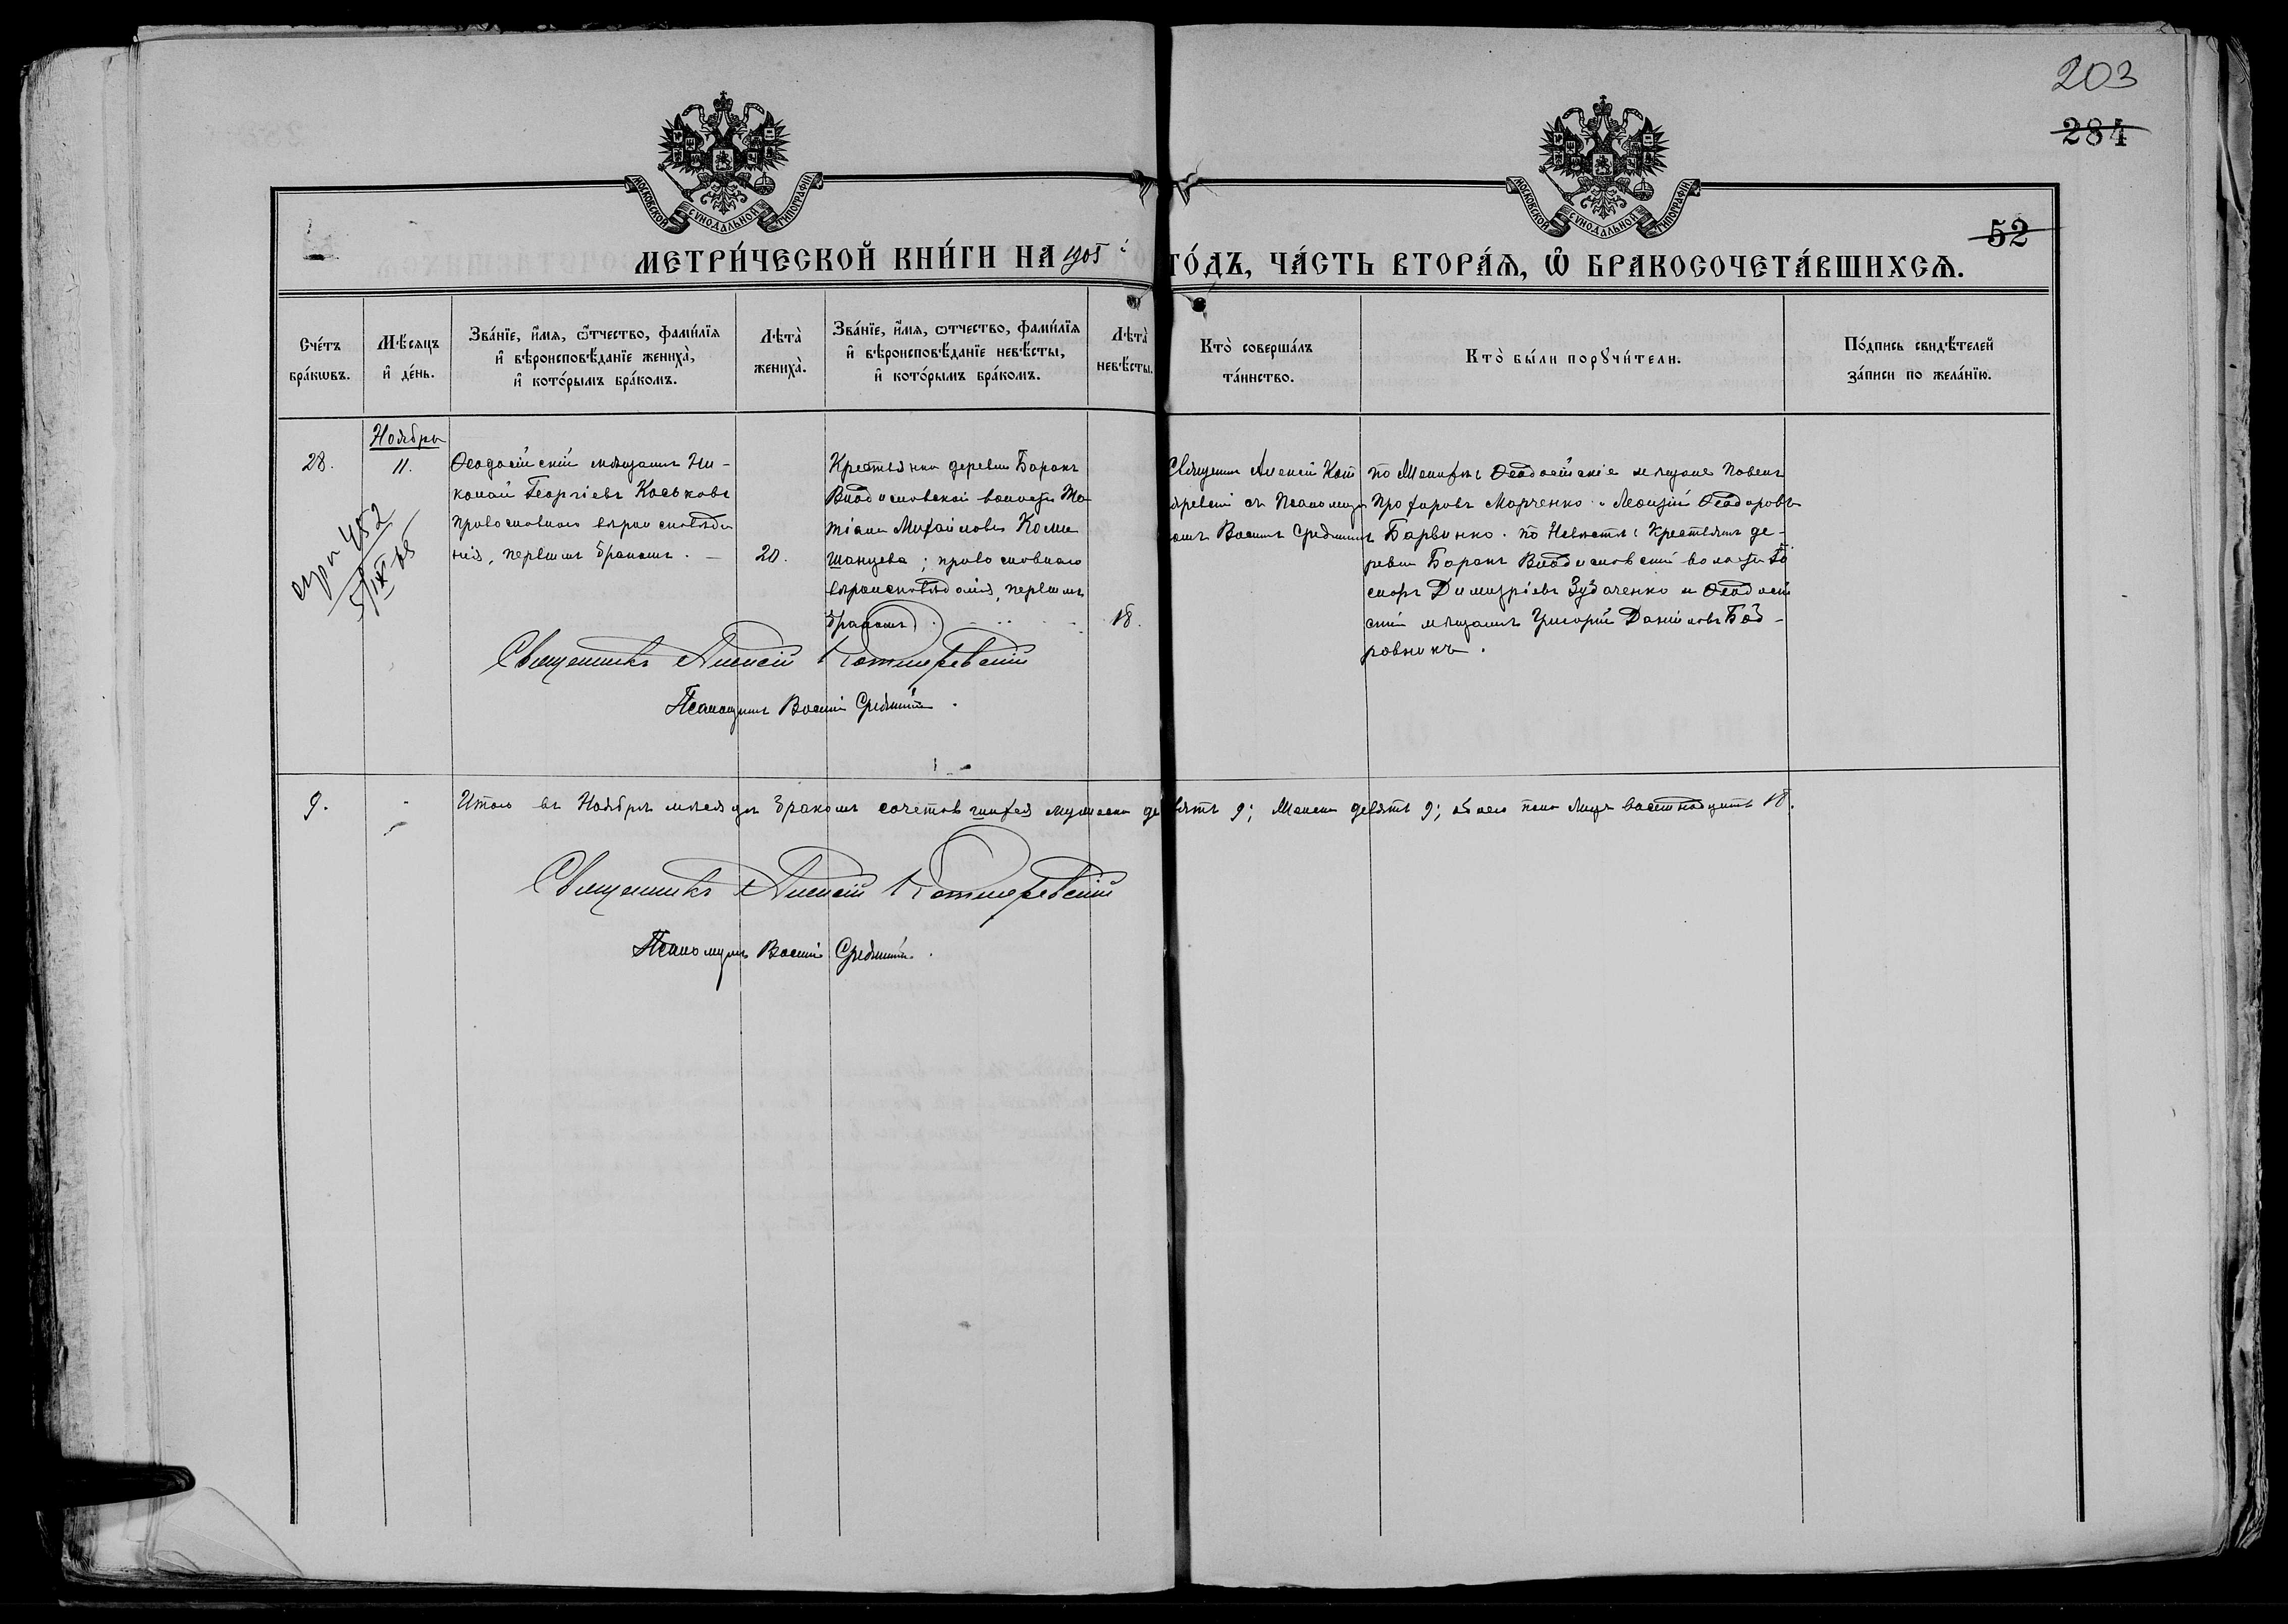 203
284
52
МОСКОВСКОЙ СѴНОДАЛЬНОЙ ТИПОГРАФІИ
МОСКОВСКОЙ СѴНОДАЛЬНОЙ ТИПОГРАФІИ
МЕТРИ́ЧЕСКОЙ КНИ́ГИ НА 1905 ГО́ДЪ, ЧА́СТЬ ВТОРА́Ѧ, Ѽ БРАКОСОЧЕТА́ВШИХСѦ.
Сче́тъ бра́кѡвъ.
Мѣ́сяцъ и҆ де́нь.
Зва́нїе, и҆́мя, ѻ҆́тчество, фами́лїя и҆ вѣроисповѣ́данїе жениха̀, и҆ кото́рымъ бра́комъ.
Лѣта̀ жениха̀.
Зва́нїе, и҆́мя, ѻтчество, фами́лїя и҆ вѣроисповѣ́данїе невѣ́сты, и҆ кото́рымъ бра́комъ.
Лѣта̀ невѣ́сты.
Кто̀ соверша́лъ та́инство.
Кто̀ бы́ли порꙋчи́тели.
По́дпись свидѣ́телей за́писи по жела́нїю.
Ноябрь
28.
11.
Ѳеодосійскій мѣщанинъ Ни-
колай Георгіевъ Коськовъ
православнаго вѣроисповѣда
нія, первымъ бракомъ. —
20.
Крестьянка деревни Баракъ
Владиславской волости Та
тіана Михайлова Колме
шанцева; православнаго
вѣроисповѣданія, первымъ
бракомъ.
18.
Священникъ Алексій Кот
ляревскій съ Псаломщи
комъ Василъ Средницкимъ
по Женихѣ: Ѳеодосійскіе мѣщане Павелъ
Прохоровъ Марченко и Леонтій Ѳеодоровъ
Барвинко. по Невѣстѣ: Крестьянъ де-
ревни Баракъ Владиславской волости
Димитріевъ Зубаченко и Ѳеодосій
скій мѣщанинъ Григорій Даніиловъ Боб-
ровникъ.
452
5/IX 05
Священникъ Алексій Котляревскій
Псаломщикъ Василій Средницкій.
9.
Итого въ Ноябрѣ мѣсяцѣ бракомъ сочетавшихся мужеска девять 9; Женска девять 9; обоего пола лицъ восемнадцать 18.
Священникъ Алексій Котляревскій
Псаломщикъ Василій Средницкій.